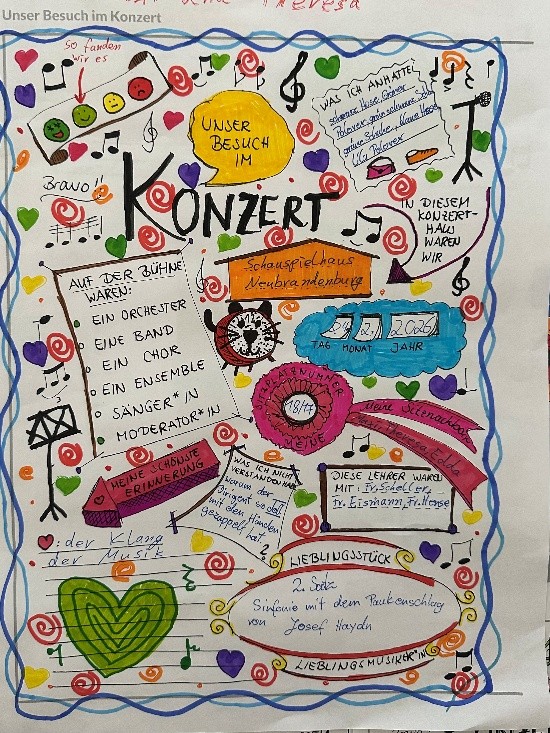 Theresa
Unser Besuch im Konzert
So fanden
wir es
UNSER
BESUCH
IM
KONZERT
WAS ICH ANHATTE:
schwarze Hose, grüner
Bravo!!
IN DIESEM
KONZERT-
HAUS
WAREN
WIR
Schauspielhaus
Neubrandenburg
AUF DER BÜHNE
WAREN:
EIN ORCHESTER
EINE BAND
EIN CHOR
EIN ENSEMBLE
SÄNGER*IN
MODERATOR*IN
2. 2026
TAG MONAT JAHR
SITZPLATZNUMMER
18/17
MEINE
Meine Sitznachbarn
Theresa, Edda
MEINE SCHÖNSTE
ERINNERUNG
WAS ICH NICHT
VERSTANDEN HABE
Warum der
Dirigent so doll
mit den Händen
gezappelt hat
?
DIESE LEHRER WAREN
MIT: Fr. Scheller,
Fr. Eismann, Fr. Hense
: der Klang
der Musik
LIEBLINGSSTÜCK
2. Satz
Sinfonie mit dem Paukenschlag
von Josef Haydn
LIEBLINGSMUSIKER*IN